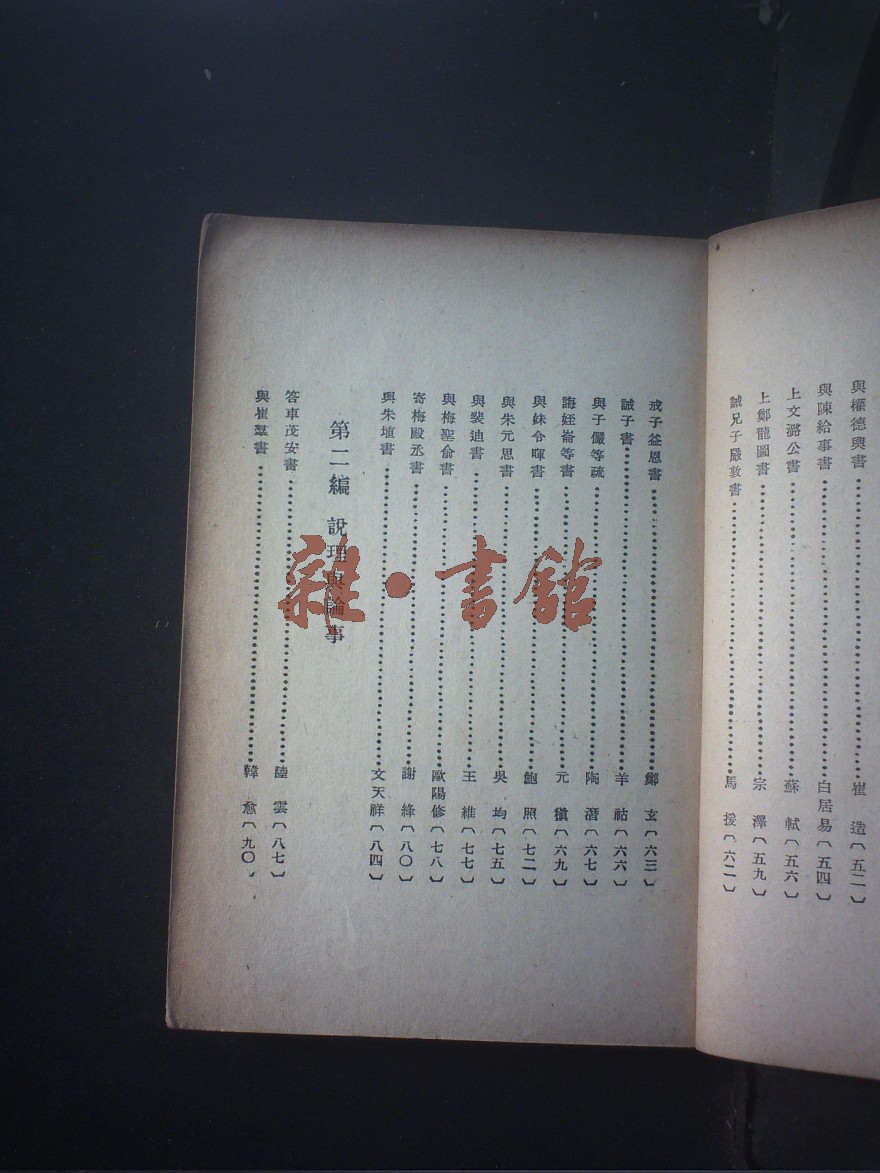 與權德輿書 崔造〔五二〕
與陳給事書 白居易〔五四〕
上文潞公書 蘇軾〔五六〕
上鄭龍圖書 宗澤〔五九〕
誡兄子嚴敦書 馬援〔六二〕
戒子益恩書 鄭玄〔六三〕
誡子書 羊祜〔六六〕
與子儼等疏 陶潛〔六七〕
誨姪崙等書 元稹〔六九〕
與妹令暉書 鮑照〔七二〕
與朱元思書 吳均〔七五〕
與裴迪書 王維〔七七〕
與梅聖俞書 歐陽修〔七八〕
寄梅殿丞書 謝絳〔八〇〕
與朱埴書 文天祥〔八四〕
第二編 說理與論事
答車茂安書 陸雲〔八七〕
與崔羣書 韓愈〔九〇〕
雜·書館